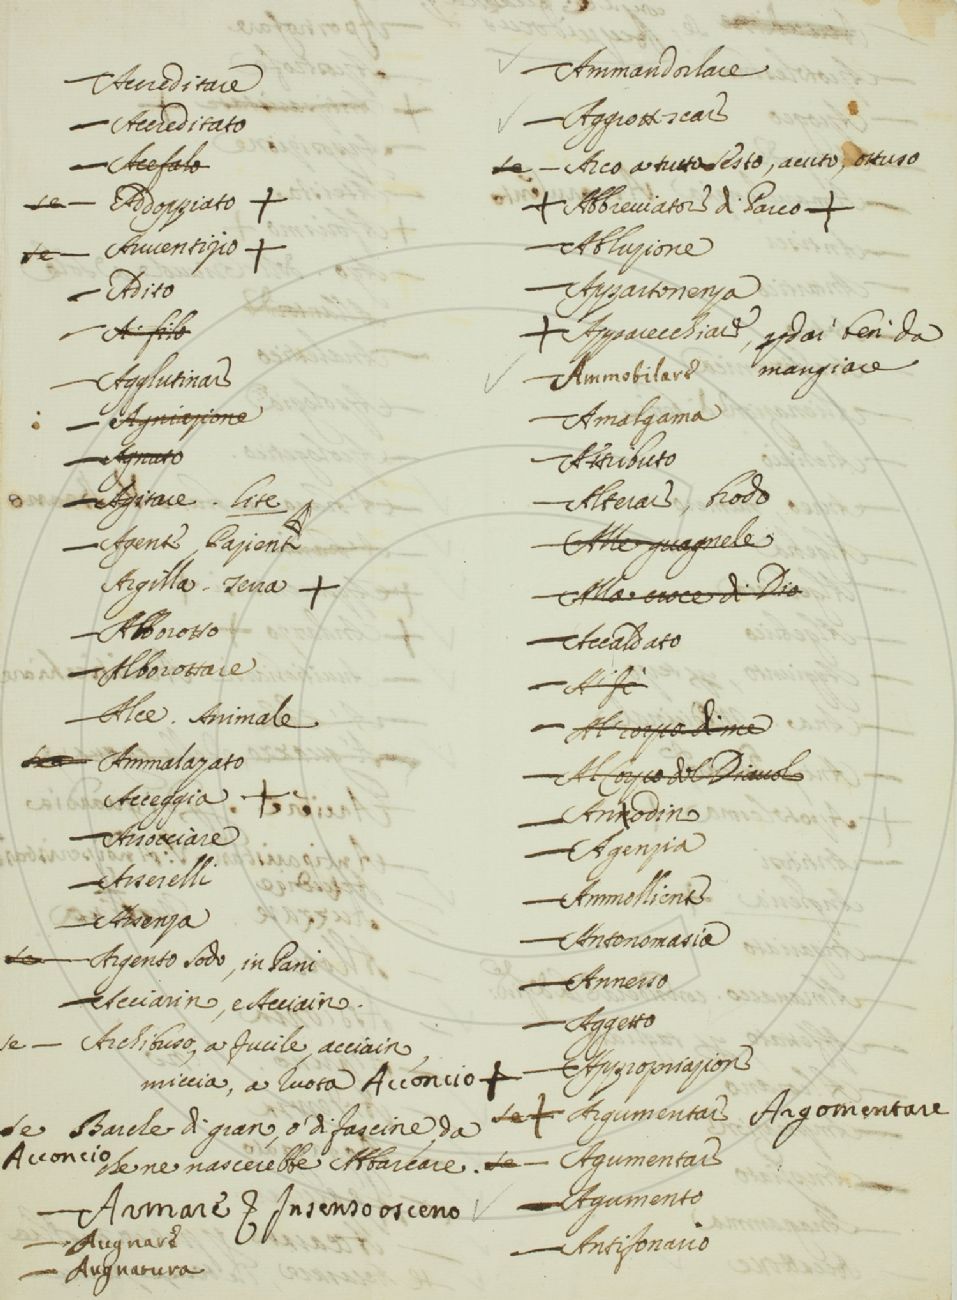 — Accreditare
— Accreditato
— Acefalo
se — Addoppiato +
se — Avventizio +
— Adito
— A filo
— Agglutinare
— Agniazione
— Agnato
— Agitare . lite
— Agente, Paziente
Argilla . Terra +
— Abborotto
— Alborottare
— Alce . Animale
— Ammalazato
Acceggia +
— Assocciare
— Aserelli
— Assenza
— Argento sodo, in Pani
— Acciarin, e Acciain .
se — Archibuso, a fucile, acciain,
miccia, a ruota Acconcio +
se Barcle di gran, o' di fascine, da
Acconcio che ne nascerebbe Abbarcare .
— Armare In senso osceno
— Augnare
— Augnatura
— Ammandorlare
— Aggrotticare
se — Arco a tutto Sesto, acuto, ottuso
+ Abbreviatore di Parco +
— Abluzione
— Appartenenza
+ Apparecchiare, dai beri da
mangiare
— Ammobilare
— Amalgama
— Attributo
— Alterare, brodo
— Alle guagnele
— Alla croce di Dio
— Accaldato
— A fè
— Al corpo di me
— Al Corpo del Diavol
— Annodin
— Agenzia
— Ammolliente
— Antonomasia
— Annesso
— Aggetto
— Appropriazione
se + Argumentare Argomentare
se — Agumentare
— Agumento
— Antifonario